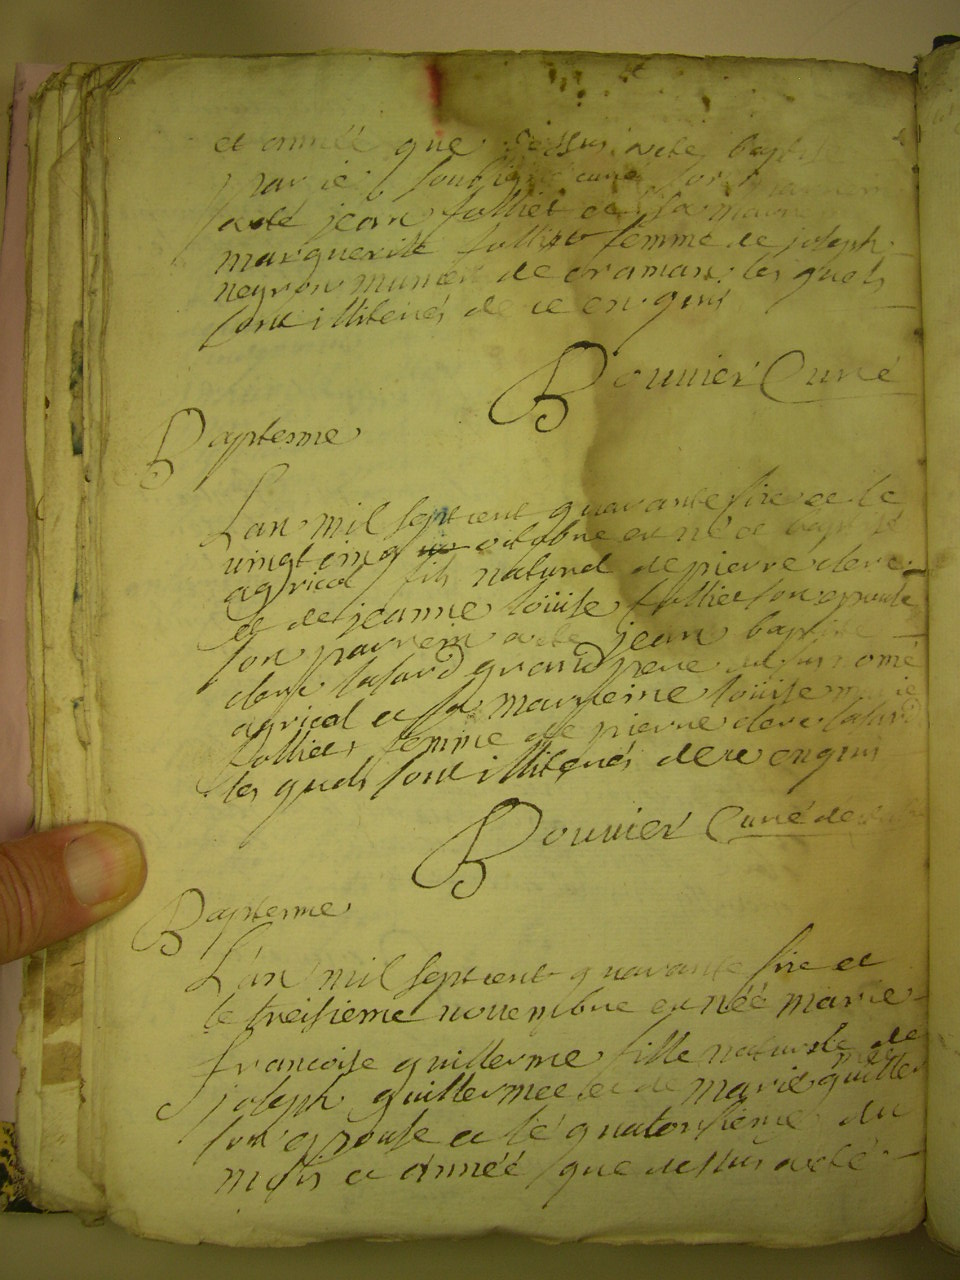 et année que dessus a été baptisé
par je soussigné curé son
a été jean folliet et sa mar
marguerite folliet femme de joseph
neyron munier de cramans les quels
sont illiterés de ce enquis
Bouvier Curé
Baptesme
Lan mil sept cent quarante sixe et le
vingt cinq octobre est né et baptisé
agricol fils naturel de pierre clerc
et de jeanne loüise folliet son epouse
son parrein a été jean baptiste
clerc grand pere du sus nomé
agricol et sa marreine loüise marie
folliet femme de pierre clerc
les quels sont illiterés de ce enquis
Bouvier Curé de
Baptesme
L'an mil sept cent quarante sixe et
le treisieme novembre est néé marie
francoise guillerme fille naturele de
joseph guillermee et de marie guiller
son epouse et le quatorsieme du
mois et année que dessus a été